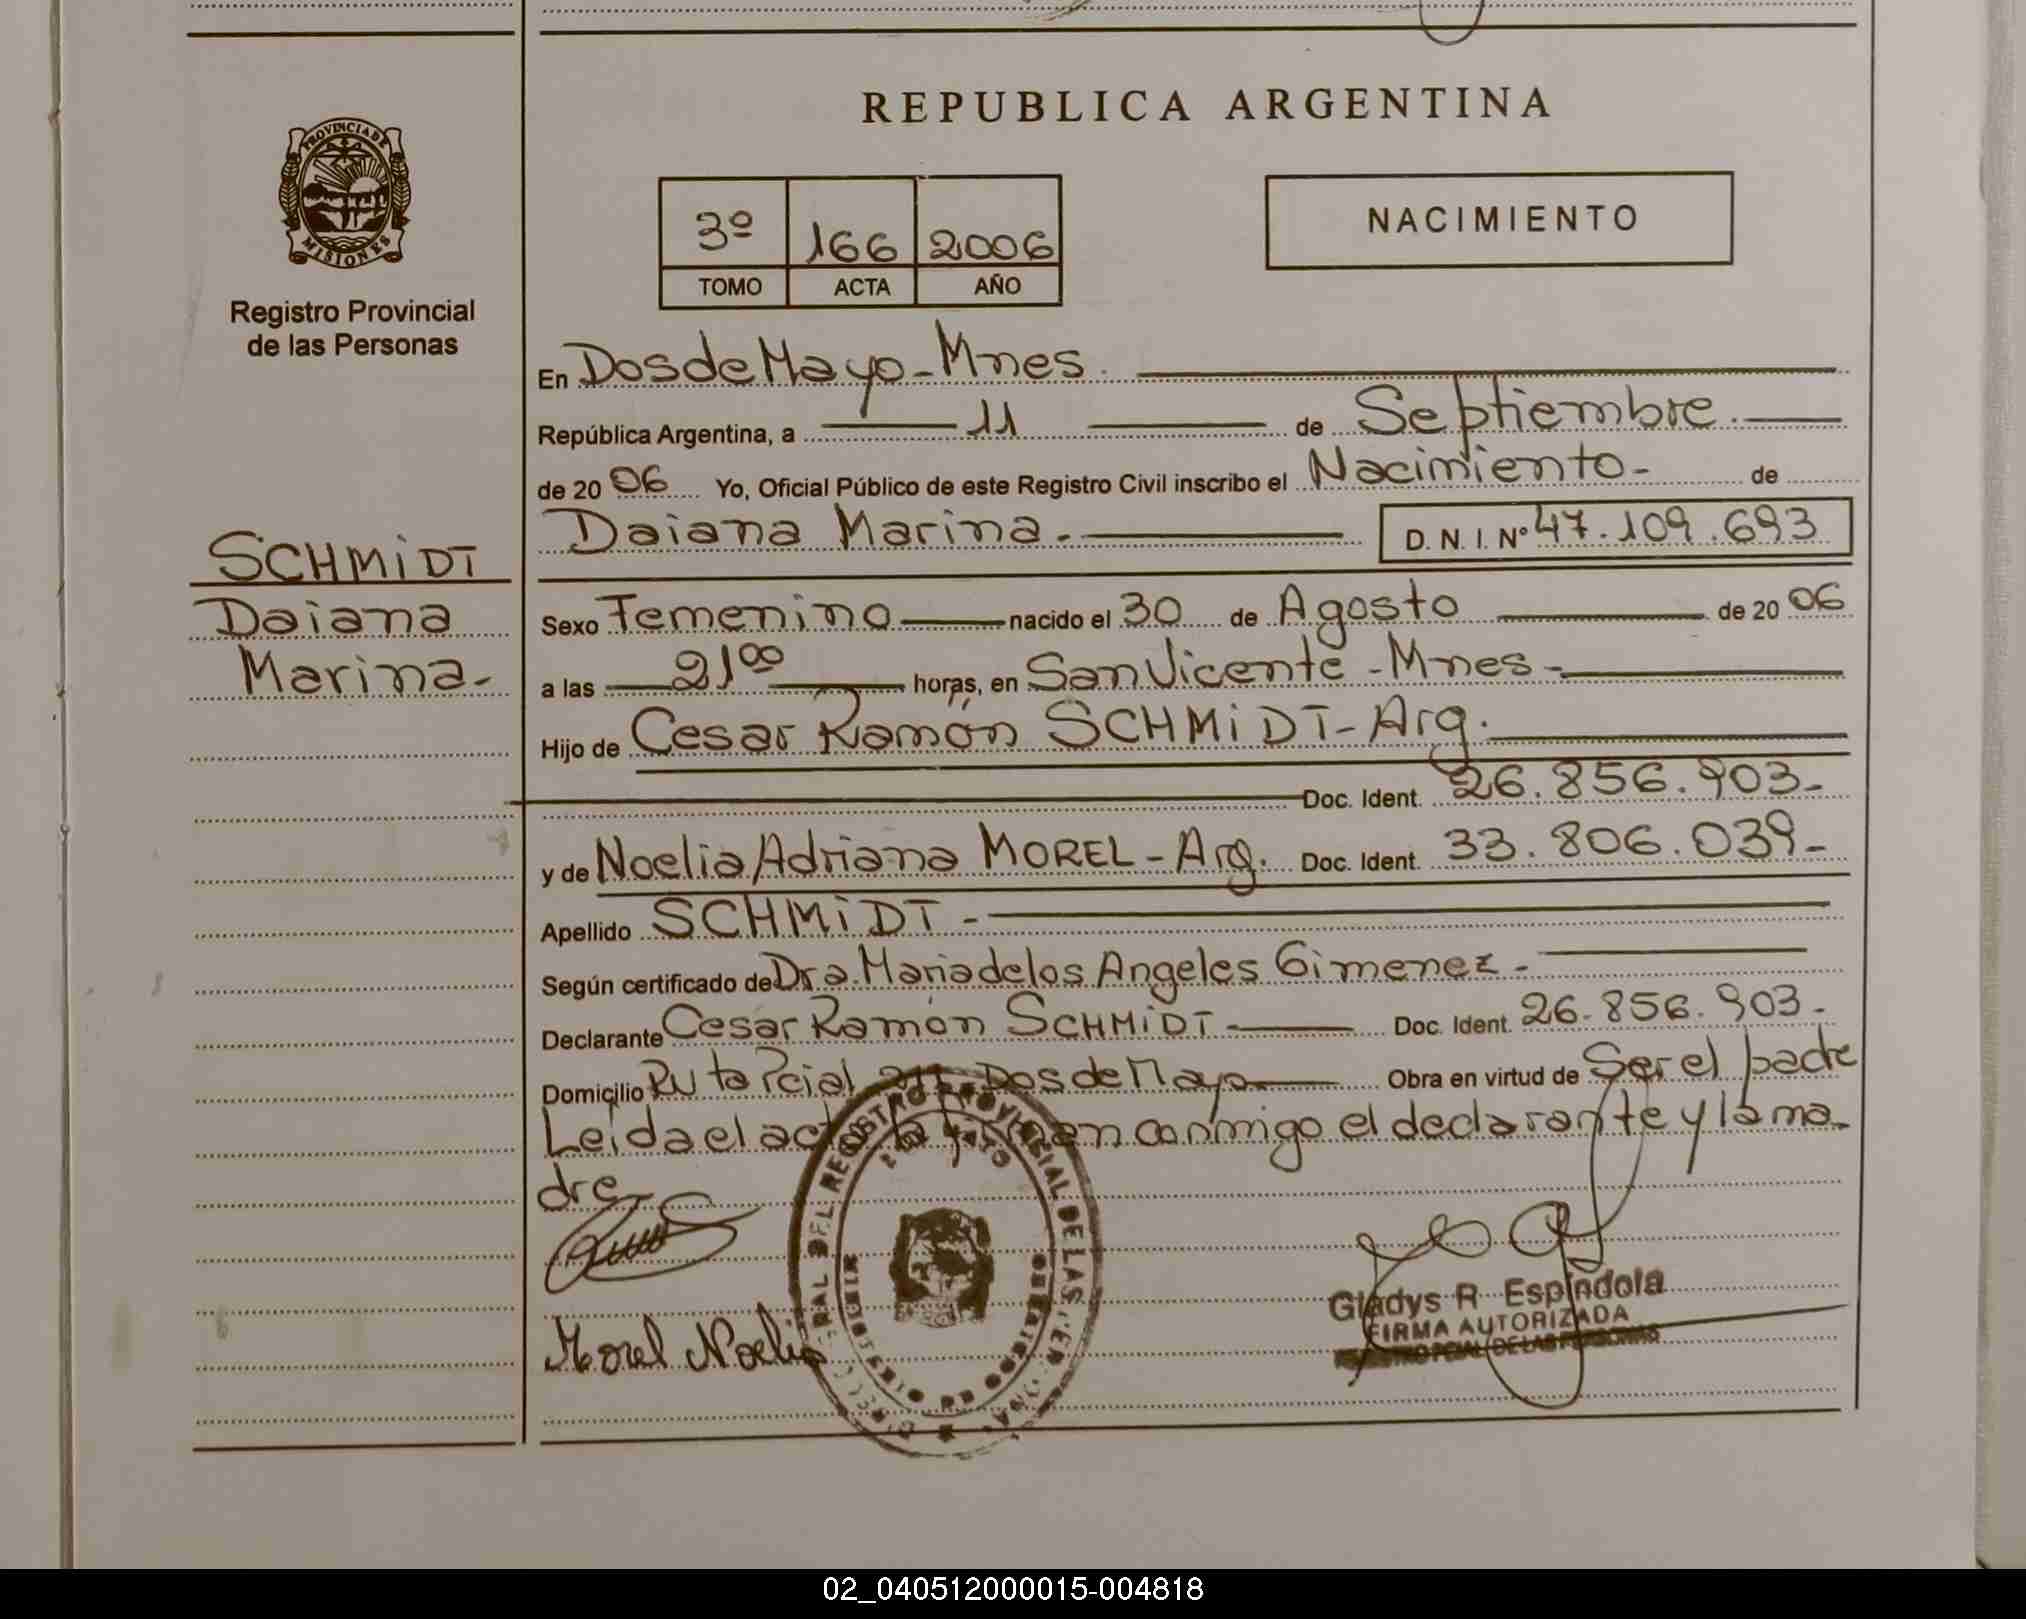 REPUBLICA ARGENTINA
PROVINCIA DE MISIONES
Registro Provincial
de las Personas
3º 166 2006
TOMO ACTA AÑO
NACIMIENTO
En Dos de Mayo - Mnes.
República Argentina, a 11 de Septiembre.
de 2006 Yo, Oficial Público de este Registro Civil inscribo el Nacimiento - de
Daiana Marina. D. N. I. Nº 47.109.693
SCHMiDT
Daiana
Marina-
Sexo Femenino nacido el 30 de Agosto de 2006
a las 21 00 horas, en San Vicente - Mnes-
Hijo de Cesar Ramón SCHMiDT - Arg.
Doc. Ident. 26.856.903-
y de Noelia Adriana MOREL - Arg. Doc. Ident. 33.806.039-
Apellido SCHMiDT -
Según certificado de Dra. Maria de los Angeles Gimenez -
Declarante Cesar Ramón SCHMiDT Doc. Ident. 26.856.903-
Domicilio Ruta Pcial Dos de Mayo Obra en virtud de Ser el padre
Leida el acta la firman conmigo el declarante y la ma-
dre
Morel Noelia
REGISTRO PROVINCIAL DE LAS
Gladys R Espindola
FIRMA AUTORIZADA
REGISTRO PCIAL DE LAS PERSONAS
02_040512000015-004818